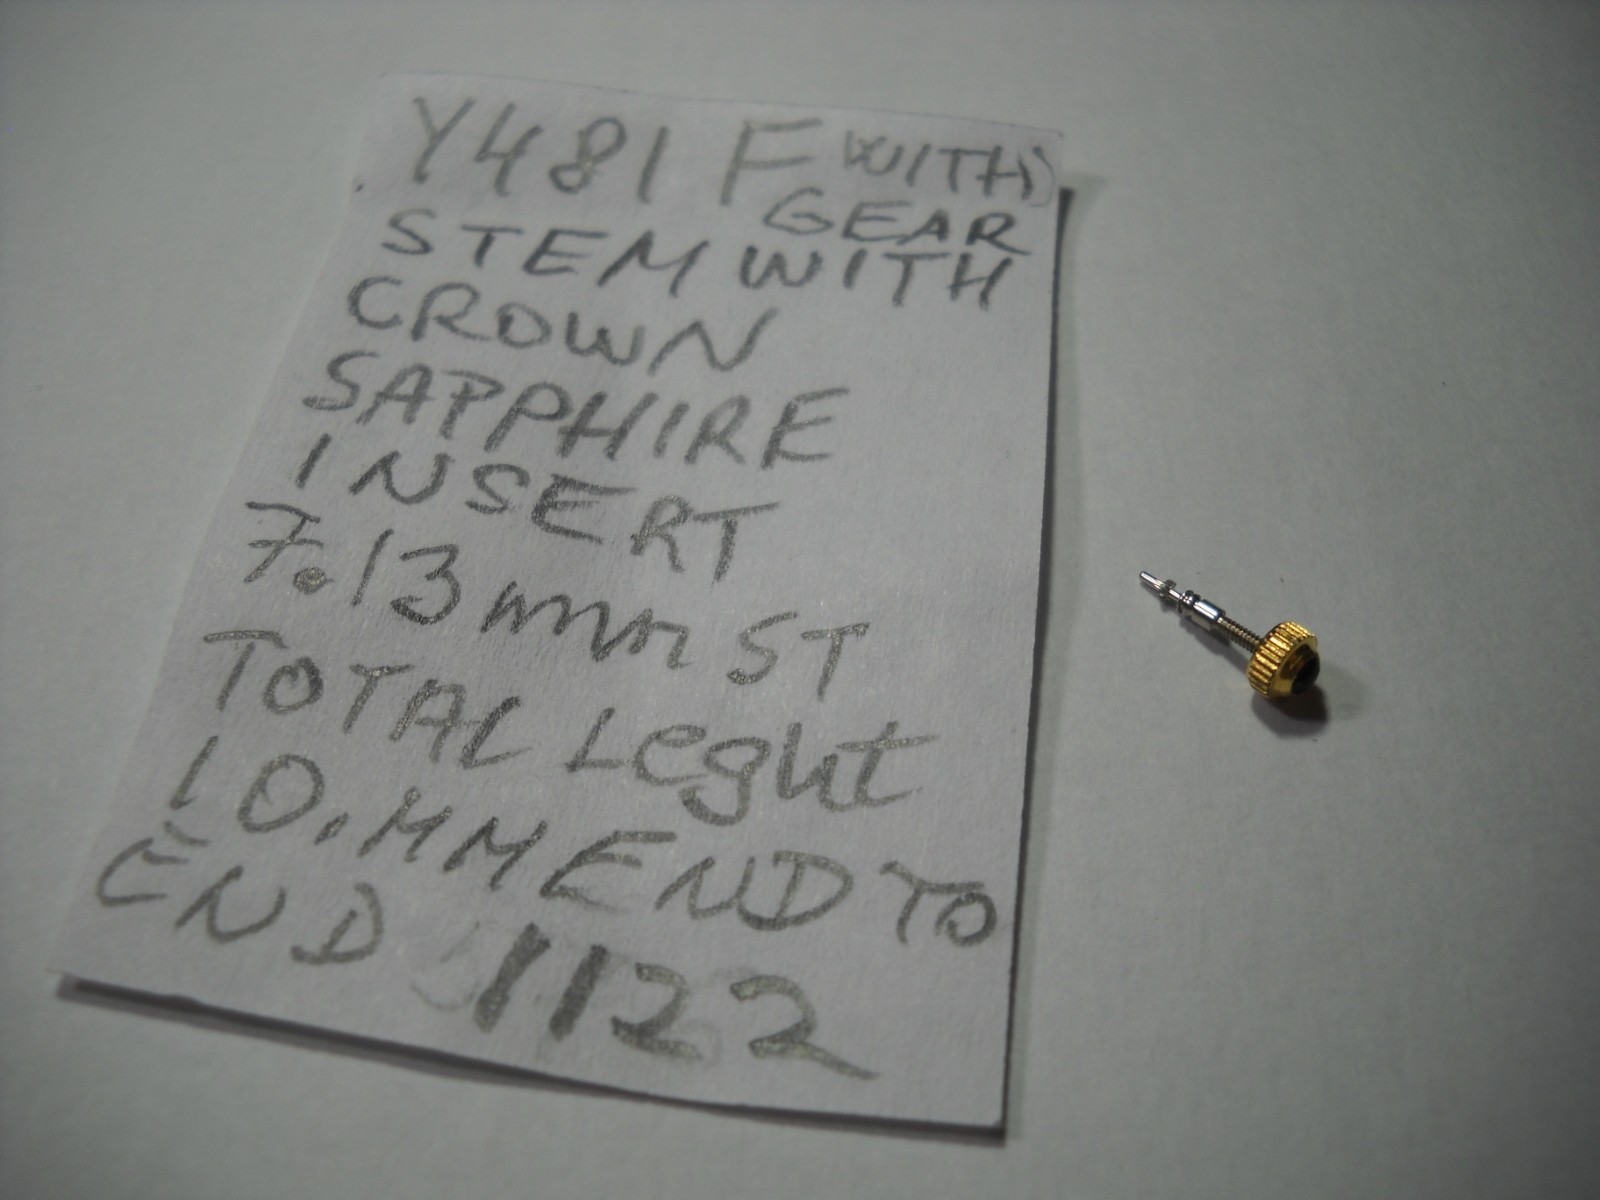 Y481 F WITH
GEAR
STEM WITH
CROWN
SAPPHIRE
INSERT
7.13mm ST
TOTAL Leght
10.MM END TO
END 1122